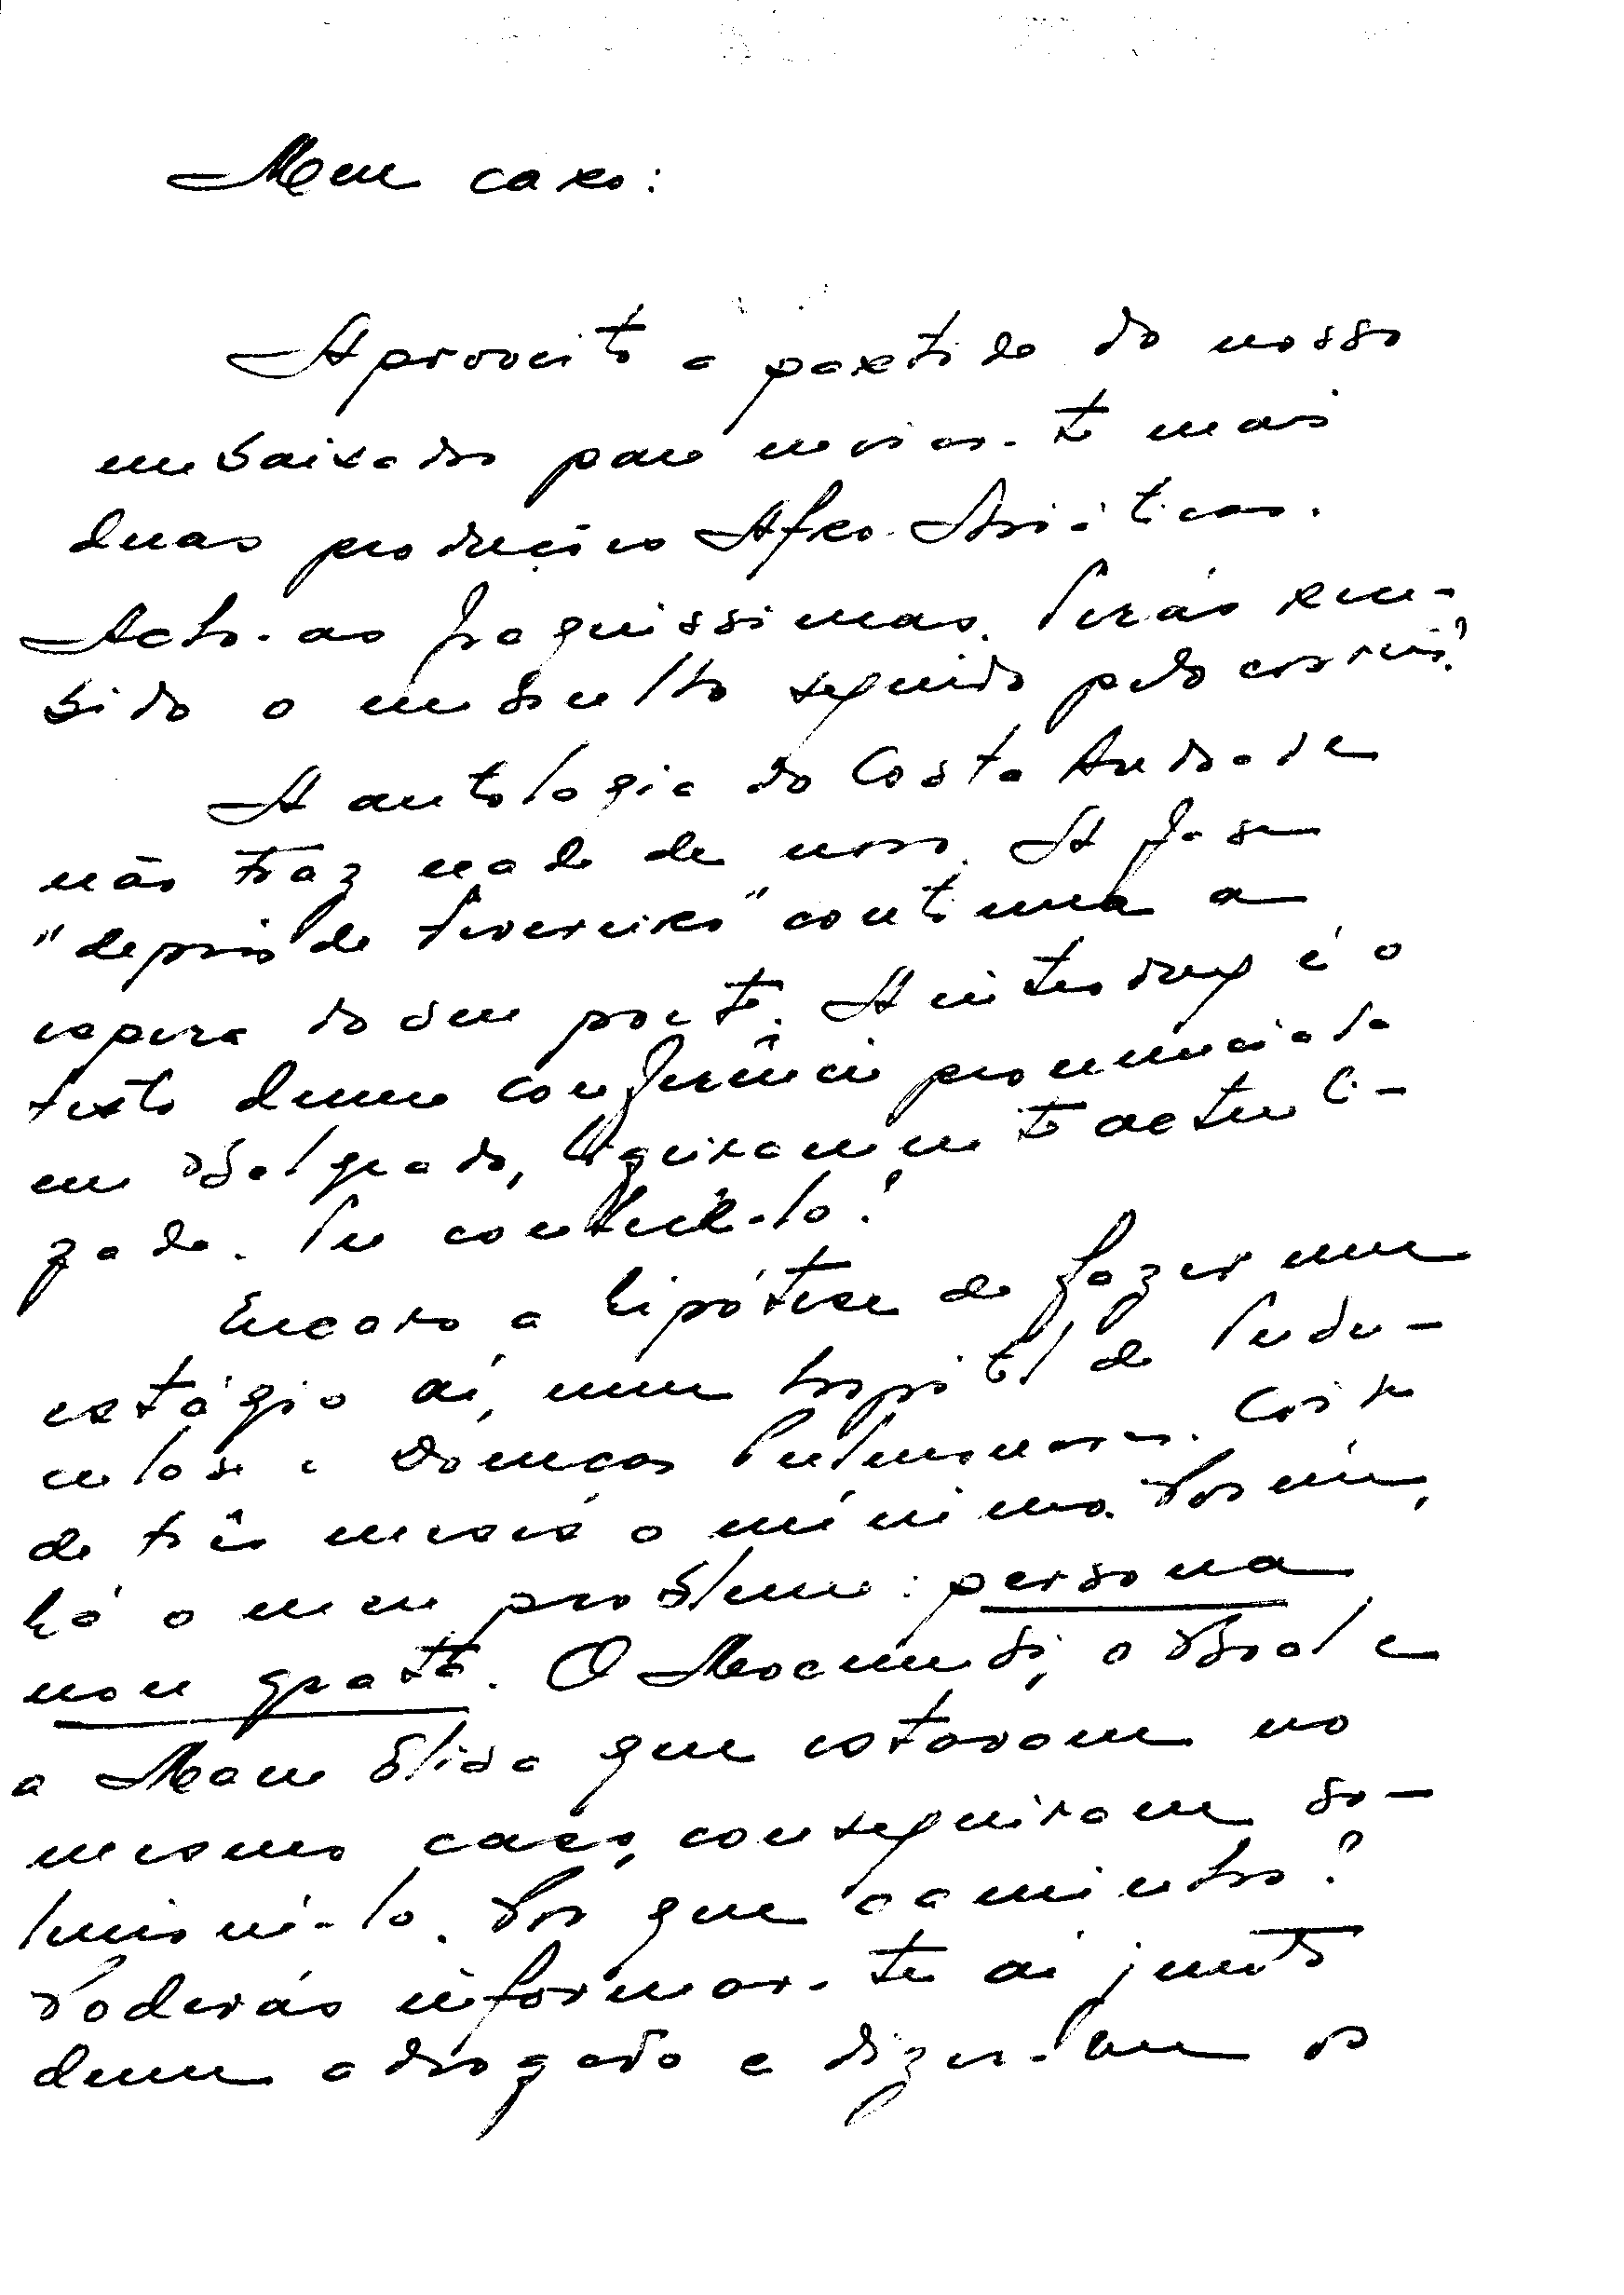 Meu caro:
Aproveito a partida do nosso
embaixador para enviar-te mais
duas produções Afro-Asiáticas.
Acho-as fraquíssimas. Terás rece-
bido o embrulho seguido pelo correio?
A antologia do Costa Andrade
não traz nada de novo. A fase
"depois de Fevereiro" continua a
espera do seu poeta. A introdução é o
texto duma conferência pronunciada
em Belgrado, ligeiramente actuali-
zada. Tu conhecê-la?
Encaro a hipótese de fazer um
estágio aí, num hospital de Tuber-
culose e Doenças Pulmonares. Coisa
de três meses o mínimo. Porém,
há o meu problema: persona
non grata. O Mocumbi, o Boal e
a Maria Elisa que estavam no
mesmo caso, conseguiram so-
lucioná-lo. Por que caminho?
Poderás informar-te aí junto
dum advogado e dizer-me os